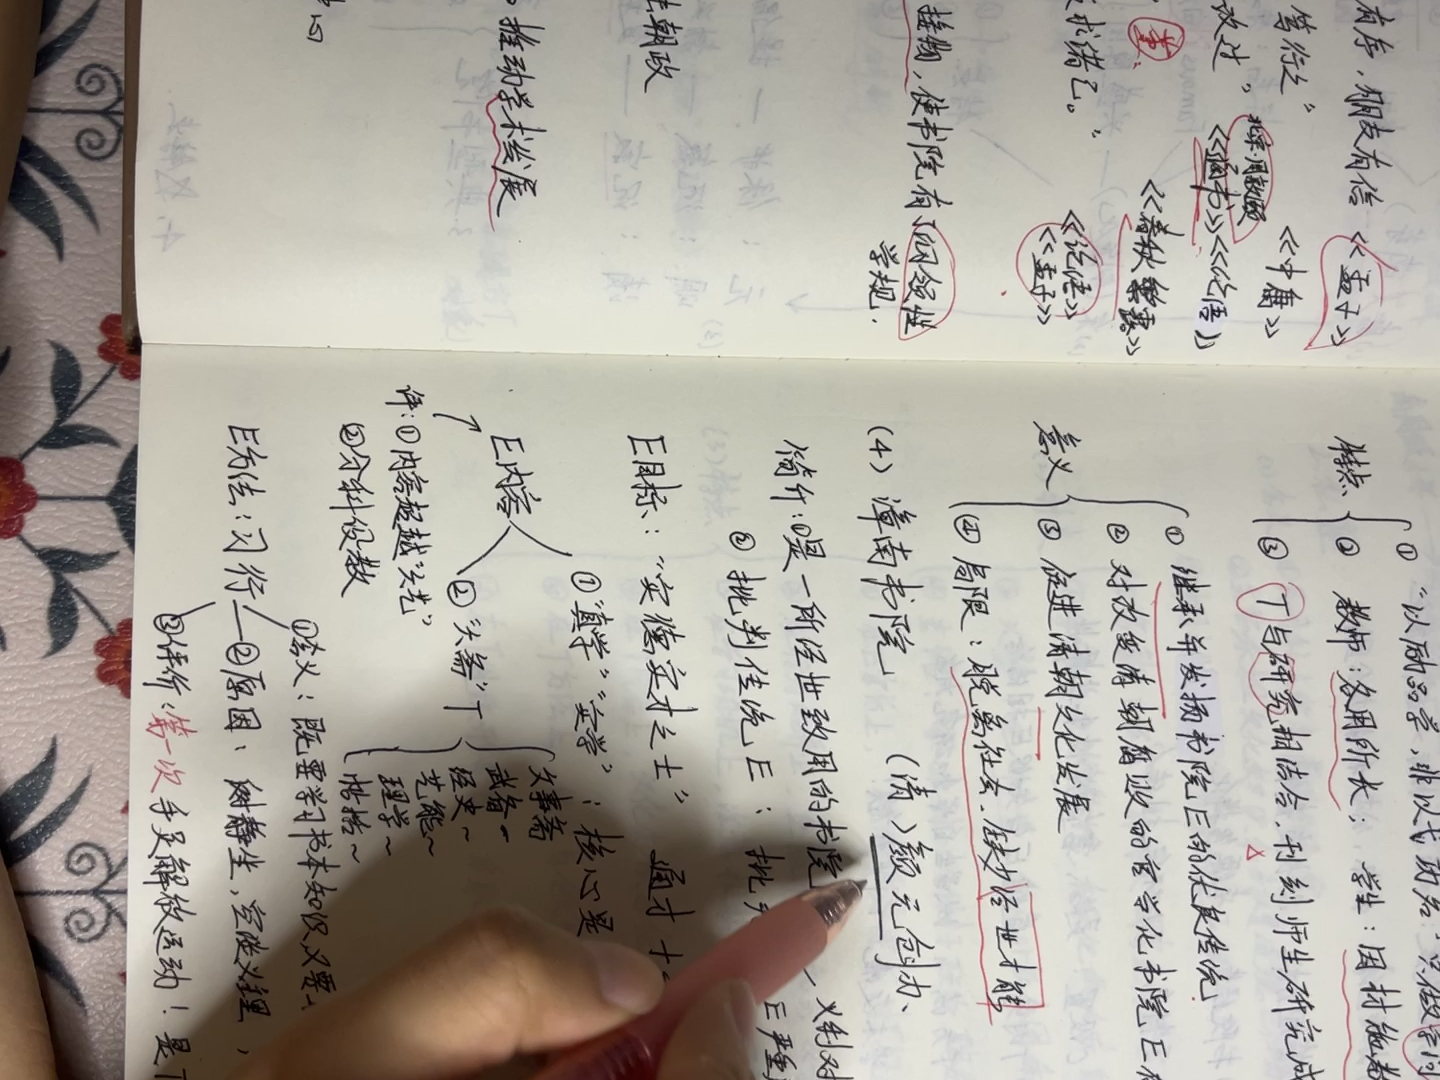 有序，朋友有信 《孟子》
笃行之” 《中庸》
改过， 北宋·周敦颐《通书》《论语》
《春秋繁露》
反求诸己。” 《论语》《孟子》
接物，使书院有了纲领性
学规.
朝政
推动学术发展
特点
① “以励品学，非以弋功名
② 教师：各用所长； 学生：因材施教
③ T与研究相结合，刊刻师生研究成
意义
① 继承并发扬书院E的优良传统
② 对改变清朝腐败的官学化书院E
③ 促进清朝文化发展
④ 局限：脱离社会、缺少经世才能
(4) 漳南书院 (清)颜元创办、
简介：①是一所经世致用的书院
② 批判传统E： 义利对
E目标：“实德实才之士” 通才
E内容
① “真学”“实学”：核心是
② “六斋”T
文事斋
武备~
经史~
艺能~
理学~
帖括~
评：①内容超越“六艺”
②分科设教
E方法：习行
①含义：既要学习书本知识又要
②原因、 静坐，空谈义理，
③评价：第一次 手足解放运动！是